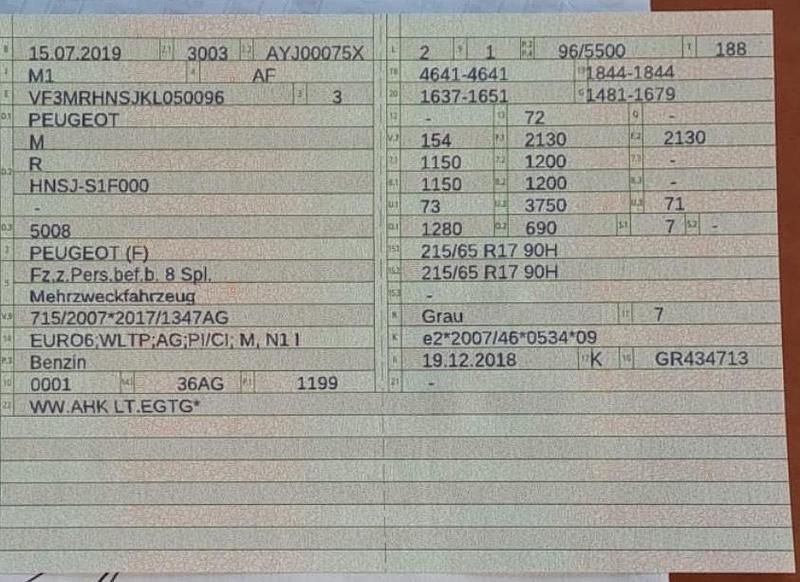 B 15.07.2019 2.1 3003 2.2 AYJ00075X
J M1 4 AF
E VF3MRHNSJKL050096 3 3
D.1 PEUGEOT
M
D.2 R
HNSJ-S1F000
-
D.3 5008
2 PEUGEOT (F)
5 Fz.z.Pers.bef.b. 8 Spl.
Mehrzweckfahrzeug
V.9 715/2007*2017/1347AG
14 EURO6;WLTP;AG;PI/CI; M, N1 I
P.3 Benzin
10 0001 14.1 36AG P.1 1199
22 WW.AHK LT.EGTG*
L 2 9 1 P.2 P.4 96/5500 T 188
18 4641-4641 19 1844-1844
20 1637-1651 G 1481-1679
12 - 13 72 Q -
V.7 154 F.1 2130 F.2 2130
7.1 1150 7.2 1200 7.3 -
8.1 1150 8.2 1200 8.3 -
U.1 73 U.2 3750 U.3 71
O.1 1280 O.2 690 S.1 7 S.2 -
15.1 215/65 R17 90H
15.2 215/65 R17 90H
15.3 -
R Grau 11 7
K e2*2007/46*0534*09
6 19.12.2018 17 K 16 GR434713
21 -